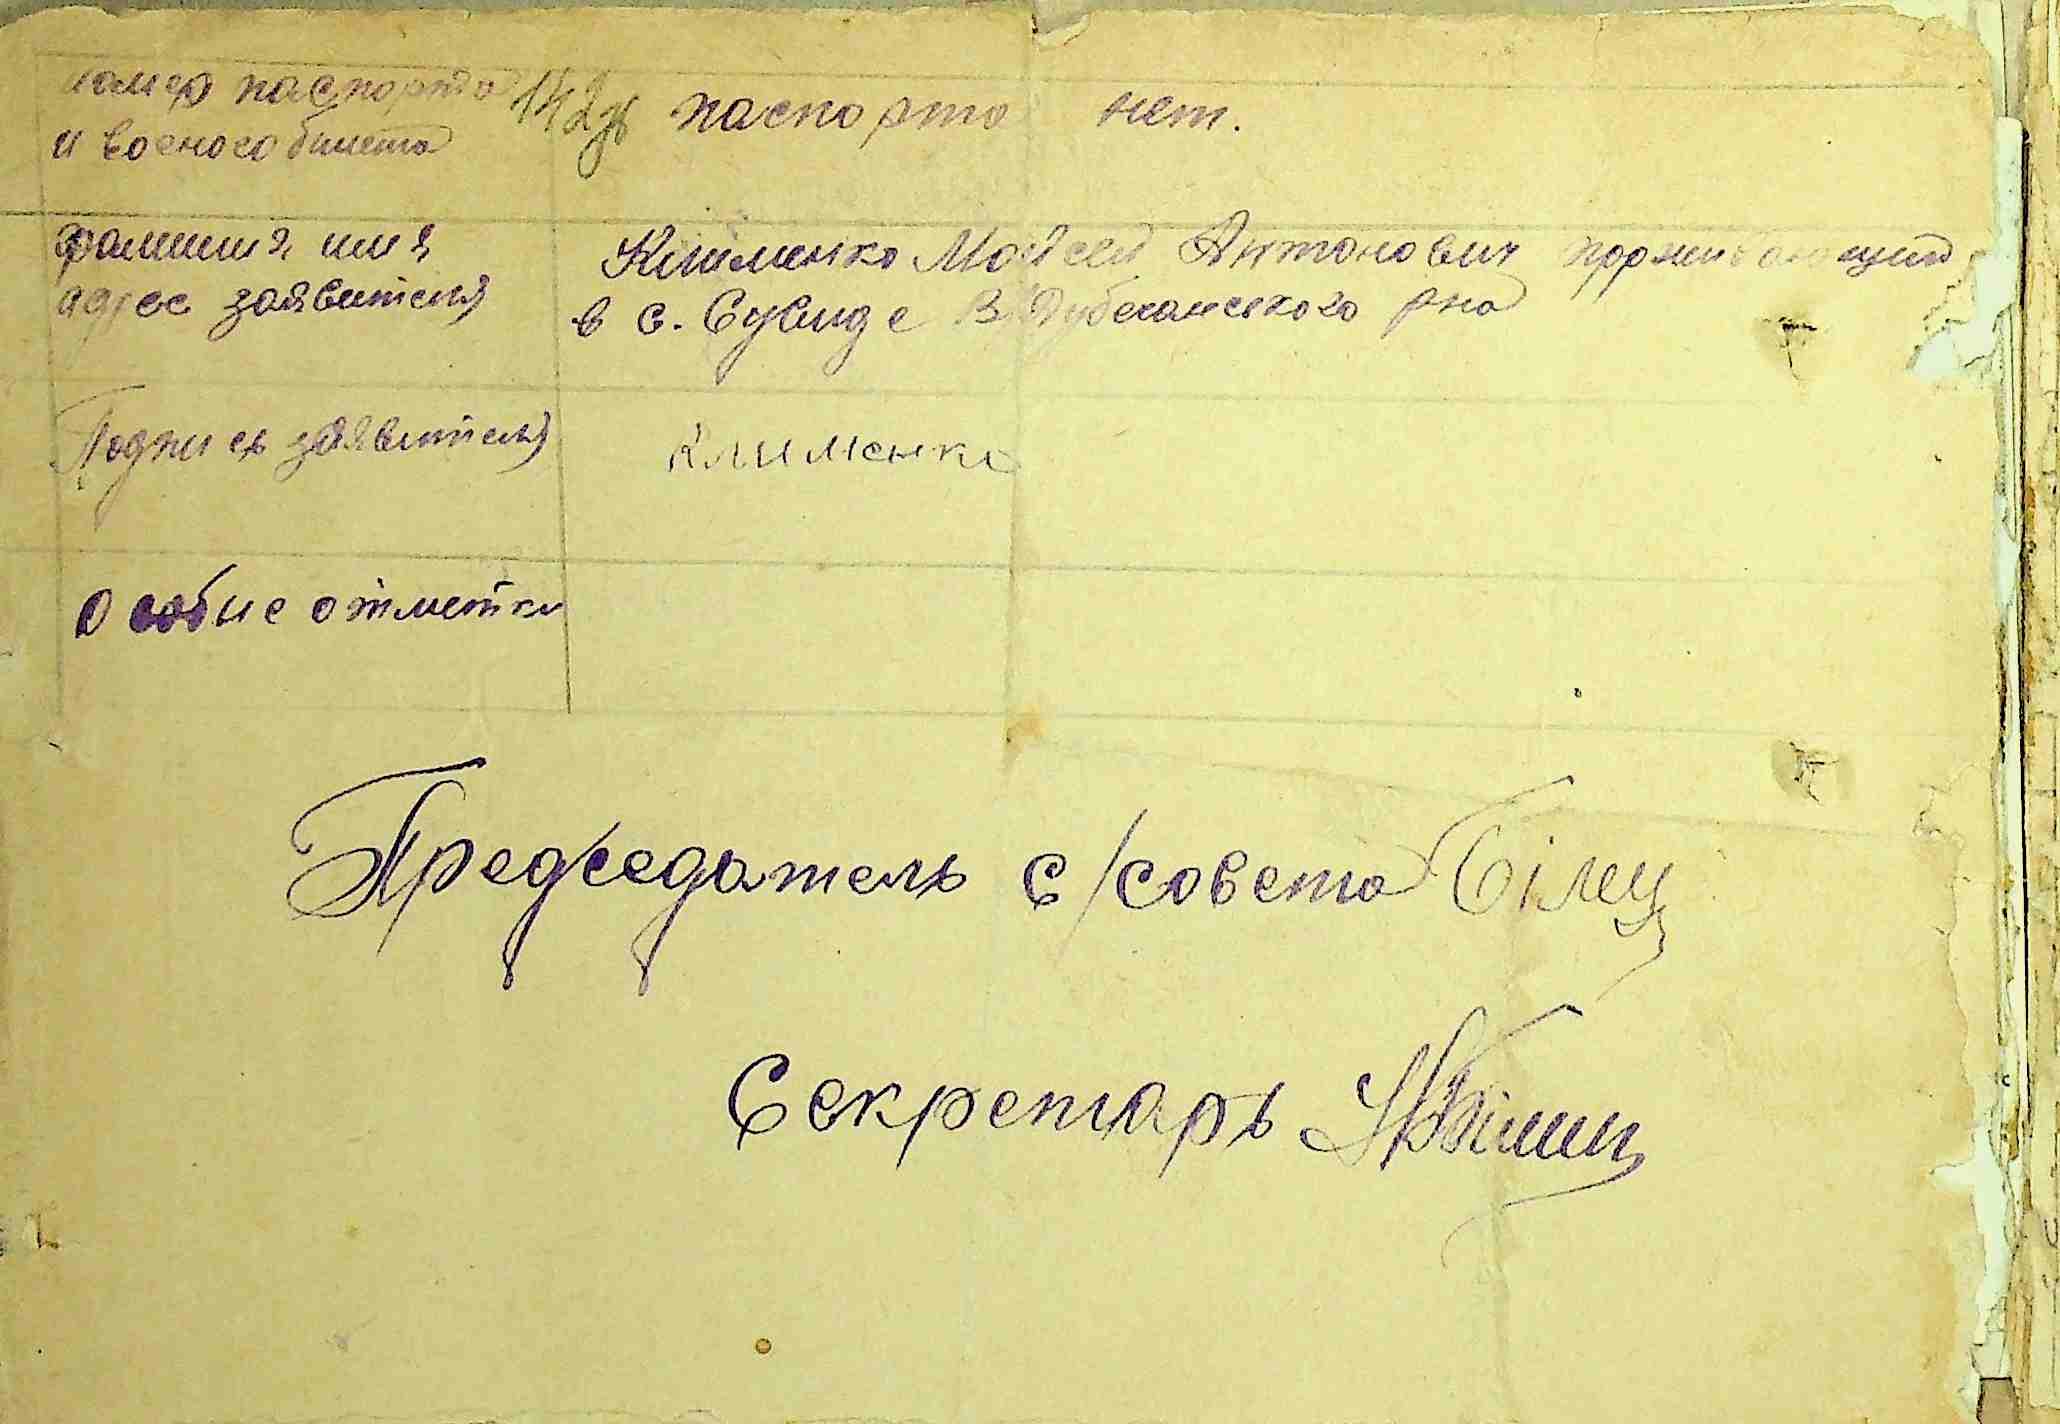 номер паспорта
и военого билета
142зв паспорта нет.
фамилия имя
адрес заявителя
Клименко Мойсей Антонович проживающий
в с. Сувиде В Дубечанского рна
Подпись заявителя
Клименко
Особие отметки
Председатель с/совета Білец
Секретарь